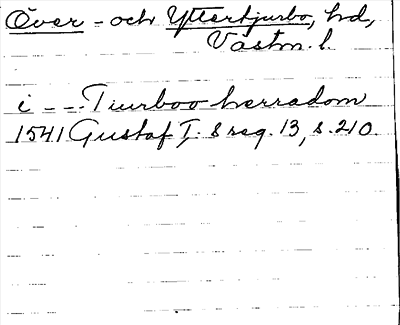 Över - och Yttertjurbo, hd,
Västm. l.
i --- Tiurboo herradom
1541 Gustaf I. s reg. 13, s. 210.